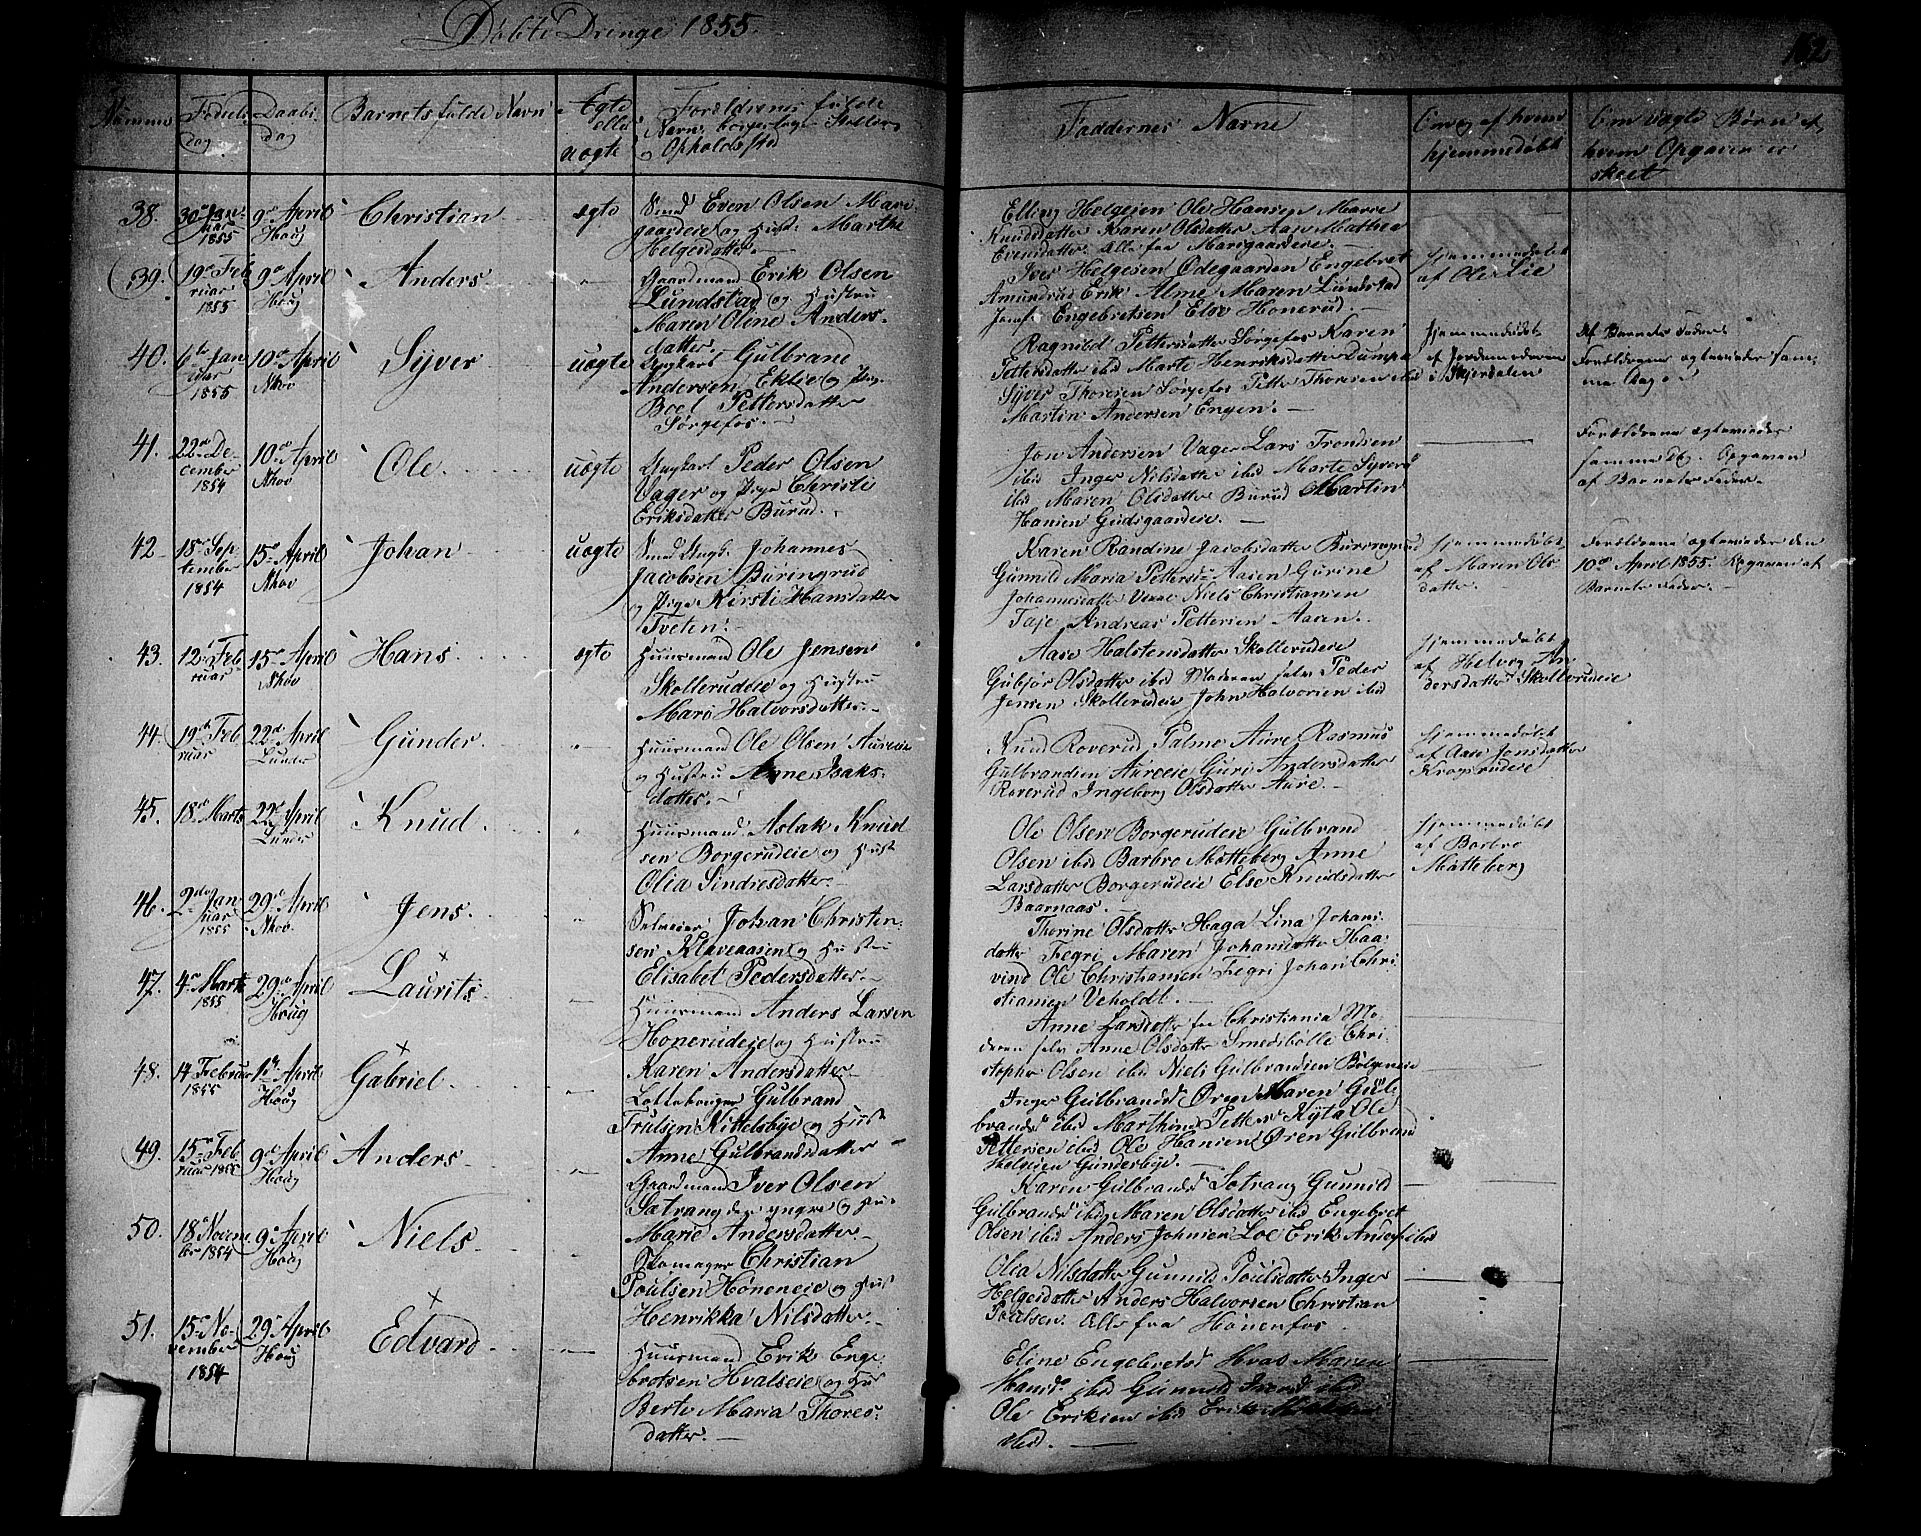 Døbte Drenge 1855.
Fødselsdag
Daabsdag
Barnets fulde Navn
Ægte eller uægte
Forældrenes fulde Navn, borgerlige Stilling og Opholdssted
Faddernes Navne
Om og af hvem hjemmedøbt
Om uægte Børn af hvem Opgaven er skeet
38. 30 Januar 1855 9 April Houg Christian ægte
Smed Even Olsen Mari
gaardeie og Hust. Marthe
Helgesdatter.
Elling Helgesen Ole Hansen Marie
Knudsdatter Karen Olsdatter Aase Mathea
Evensdatter. Alle fra Marigaardeie.
39. 19 Februar 1855 9 April Houg Anders "
Gaardmand Erik Olsen
Lundstad og Hustru
Maren Oline Anders-
datter.
Iver Helgesen Ødegaarden Engebret
Amundrud Erik Alme Maren Lundstad
Jomf. Engebretsen Else Honerud
Hjemmedøbt
af Ole Lie
40. 6te Januar 1855 10 April Nkov Syver uægte
Ungkarl Gulbrand
Andersen Eklie og Pige
Boel Pettersdatter
Sørgefos.
Ragnild Pettersdatter Sørgefos Karen
Pettersdatter ibd Marte Henriksdatter Lumpa
Syver Thoresen Sørgefos Petter Thoresen ibd
Martin Andersen Engen.
Hjemmedøbt
af Jordemoderen
i Skjerdalen
Af Barnets Fader.
Forældrene ægtevieder sam-
me Dag.
41. 22 December 1854 10 April Nkov Ole uægte
Ungkarl Peder Olsen
Vager og Pige Christi
Eriksdatter Burud.
Jon Andersen Vager Lars Trondsen
ibd Inger Nilsdatter ibd Marte Syvers
ibd Maren Olsdatter Burud Martin
Hansen Gudsgaardeie.
Forældrene ægtevieder
samme D. Opgaven
af Barnets Fader.
42 18 September 1854 15 April Nkov Johan uægte
Smed Ungk. Johannes
Jacobsen Buringrud
og Pige Kirsti Hansdatter
Tveten.
Karen Randine Jacobsdatter Burringrud
Gunnild Maria Petters Aasen Gurine
Johannesdatter Niels Christiansen
Taje Andreas Pettersen Aasen.
Hjemmedøbt
af Maren Ols
datter.
Forældrene ægtevieder den
10 April 1855. Opgaven af
Barnets Fader.
43. 12 Februar 15 April Nkov Hans ægte
Huusmand Ole Jensen
Skollerudeie og Hustru
Mari Halvorsdatter.
Aase Halstensdatter Skollerudeie
Gubjør Olsdatter ibd Moderen selv Peder
Jensen Skollerudeie John Halvorsen ibd
Hjemmedøbt
af Helvig An
dersdatter Skollerudeie
44 19 Februar 22 April Lunder Gunder "
Huusmand Ole Olsen Aureeie
og Hustru Anne Isaks-
datter.
Knud Roverud Palme Aure Rasmus
Gulbrandsen Aureeie Guri Andersdatter
Roverud Ingeborg Olsdatter Aure.
Hjemmedøbt
af Aase Jonsdatter
Krogsrudeie
45. 18 Marts 22 April Lunder Knud "
Huusmand Aslak Knud
sen Borgerudeie og Hust
Olia Sindresdatter.
Ole Olsen Borgerudeie Gulbrand
Olsen ibd Barbro Motteberg Anne
Larsdatter Borgerudeie Else Knudsdatter
Baarnaas.
Hjemmedøbt
af Barbro
Motteberg
46. 2den Januar 1855 29 April Nkov Jens "
Selveier Johan Christen-
sen Kløveaasen og Hustru
Elisabet Pedersdatter.
Thorine Olsdatter Haga Lina Johans
datter Fegri Maren Johansdatter Haa-
vind Ole Christiansen Fegri Johan Chri-
stiansen Veholdt.
47. 4 Marts 1855 29 April Houg Laurits "
Huusmand Anders Larsen
Honerudeie og Hustru
Karen Andersdatter.
Anne Larsdatter fra Christiania Mo-
deren selv Anne Olsdatter Smedsbølle Chri-
stopher Olsen ibd Niels Gulbrandsen Bølgeneie
48. 14 Februar 1855 1 April Houg Gabriel "
Gulbrand
Trulsen Kittelsbye og Hust
Anne Gulbrandsdatter
Inger Gulbrands Øren Maren Gul-
brands ibd Marthine Petters Kyta Ole
Pettersen ibd Ole Hansen Øren Gulbrand
Helgesen Gundersbye.
49. 15 Februar 1855 9 April Houg Anders "
Gaardmand Iver Olsen
Sætrang den yngre og Hus
Marie Andersdatter.
Karen Gulbrands Sotrang Gunnild
Gulbrands ibd Maren Olsdatter ibd Engebret
Olsen ibd Anders Johnsen Loe Erik Anders ibd
50. 18 November 1854 9 April Houg Niels "
Skomager Christian
Poulsen Høneneie og Hust
Henrikka Nilsdatter.
Olia Nilsdatter Gunnild Poulsdatter Inger
Helgesdatter Anders Halvorsen Christian
Poulsen. Alle fra Hønenfos.
51. 15 November 1854 29 April Houg Edvard
Huusmand Erik Enge-
bretsen Hvalseie og Hus
Berte Maria Thores-
datter.
Eline Engebrets Hval Maren
Hans ibd Gunnild Trond ibd
Ole Eriksen ibd Erik
ibid.